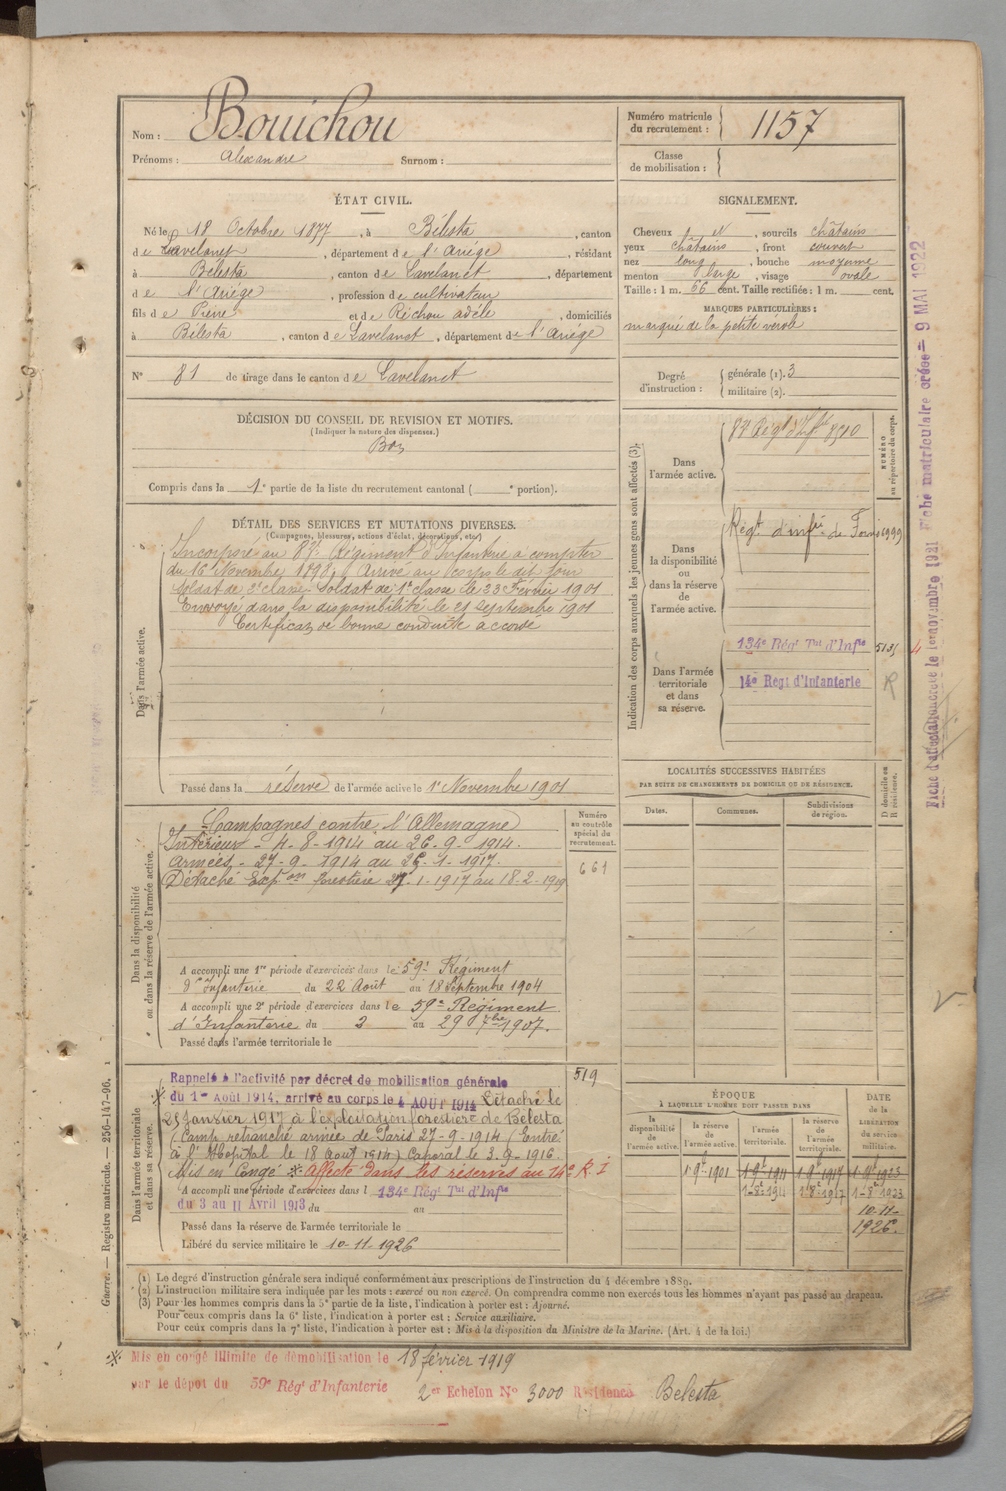 Nom : Bouichou
Prénoms : Alexandre Surnom :
Numéro matricule du recrutement : 1157
Classe de mobilisation :
ÉTAT CIVIL.
Né le 18 Octobre 1877, à Bélesta, canton
de Lavelanet, département de l'Ariège, résidant
à Bélesta, canton de Lavelanet, département
de l'Ariège, profession de cultivateur
fils de Pierre et de Réchou adèle, domiciliés
à Bélesta, canton de Lavelanet, département de l'Ariége
N° 81 de tirage dans le canton de Lavelanet
SIGNALEMENT.
Cheveux et, sourcils châtains
yeux châtains, front couvert
nez long, bouche moyenne
menton large, visage ovale
Taille : 1 m. 66 cent. Taille rectifiée : 1 m. cent.
MARQUES PARTICULIÈRES :
marqué de la petite vérole
Degré d'instruction : générale (1). 3
militaire (2).
DÉCISION DU CONSEIL DE REVISION ET MOTIFS.
(Indiquer la nature des dispenses.)
Bon
Compris dans la 1e partie de la liste du recrutement cantonal ( e portion).
DÉTAIL DES SERVICES ET MUTATIONS DIVERSES.
(Campagnes, blessures, actions d'éclat, décorations, etc.)
Dans l'armée active.
Incorporé au 87e Régiment d'Infanterie a compter
du 16 Novembre 1898, Arrivé au corps le dit jour
Soldat de 2e classe Soldat de 1e classe le 23 Février 1901
Envoyé dans la disponibilité le 21 septembre 1901
Certificat de bonne conduite accordé
Passé dans la réserve de l'armée active le 1er Novembre 1901
Indication des corps auxquels les jeunes gens sont affectés (3).
NUMÉRO au répertoire du corps.
Dans l'armée active.
87 Régt d'Infie 8510
Dans la disponibilité ou dans la réserve de l'armée active.
Régt d'infie de 1999
Dans l'armée territoriale et dans sa réserve.
134e Régt Tal d'Infie 5131
14e Regt d'Infanterie R
LOCALITÉS SUCCESSIVES HABITÉES
PAR SUITE DE CHANGEMENTS DE DOMICILE OU DE RÉSIDENCE.
Dates. Communes. Subdivisions de région. D domicile ou R résidence.
Dans la disponibilité ou dans la réserve de l'armée active.
Numéro au contrôle spécial du recrutement.
661
Campagnes contre l'Allemagne
Intérieur - 4-8-1914 au 26-9-1914.
Armées - 27-9-1914 au 26-1-1917.
Détaché Expon forestière 27-1-1917 au 18-2-1919
A accompli une 1re période d'exercices dans le 59e Régiment
d'Infanterie du 22 Août au 18 Septembre 1904
A accompli une 2e période d'exercices dans le 59e Régiment
d'Infanterie du 2 au 29 7bre 1907.
Passé dans l'armée territoriale le
Dans l'armée territoriale et dans sa réserve.
519
Rappelé à l'activité par décret de mobilisation générale
du 1er Août 1914, arrivé au corps le 4 AOUT 1914 Détaché le
25 Janvier 1917 à l'exploitation forestière de Bélesta
(Camp retranché armée de Paris 27-9-1914 (Entré
à l'Hopital le 18 Aout 1914) Caporal le 3-9-1916.
Mis en Congé ※ Affecté dans les réserves au 14e R. I
A accompli une période d'exercices dans l 134e Régt Tal d'Infie
du 3 au 11 Avril 1913 du au
Passé dans la réserve de l'armée territoriale le
Libéré du service militaire le 10-11-1926
ÉPOQUE
À LAQUELLE L'HOMME DOIT PASSER DANS
DATE de la LIBÉRATION du service militaire.
la disponibilité de l'armée active. la réserve de l'armée active. l'armée territoriale. la réserve de l'armée territoriale.
1-9e-1901 1-9e-1911 1-9e-1917 1-9e-1923
1-8e-1911 1-8e-1917 1-8e-1923
10-11-
1926.
(1) Le degré d'instruction générale sera indiqué conformément aux prescriptions de l'instruction du 4 décembre 1889.
(2) L'instruction militaire sera indiquée par les mots : exercé ou non exercé. On comprendra comme non exercés tous les hommes n'ayant pas passé au drapeau.
(3) Pour les hommes compris dans la 5e partie de la liste, l'indication à porter est : Ajourné.
Pour ceux compris dans la 6e liste, l'indication à porter est : Service auxiliaire.
Pour ceux compris dans la 7e liste, l'indication à porter est : Mis à la disposition du Ministre de la Marine. (Art. 4 de la loi.)
※ Mis en congé illimité de démobilisation le 18 février 1919
par le dépôt du 59e Régt d'Infanterie 2er Echelon N° 3000 Résidence Belesta
Guerre. — Registre matricule. — 256-147-96. 1
Fiche matriculaire créée = 9 MAI 1922